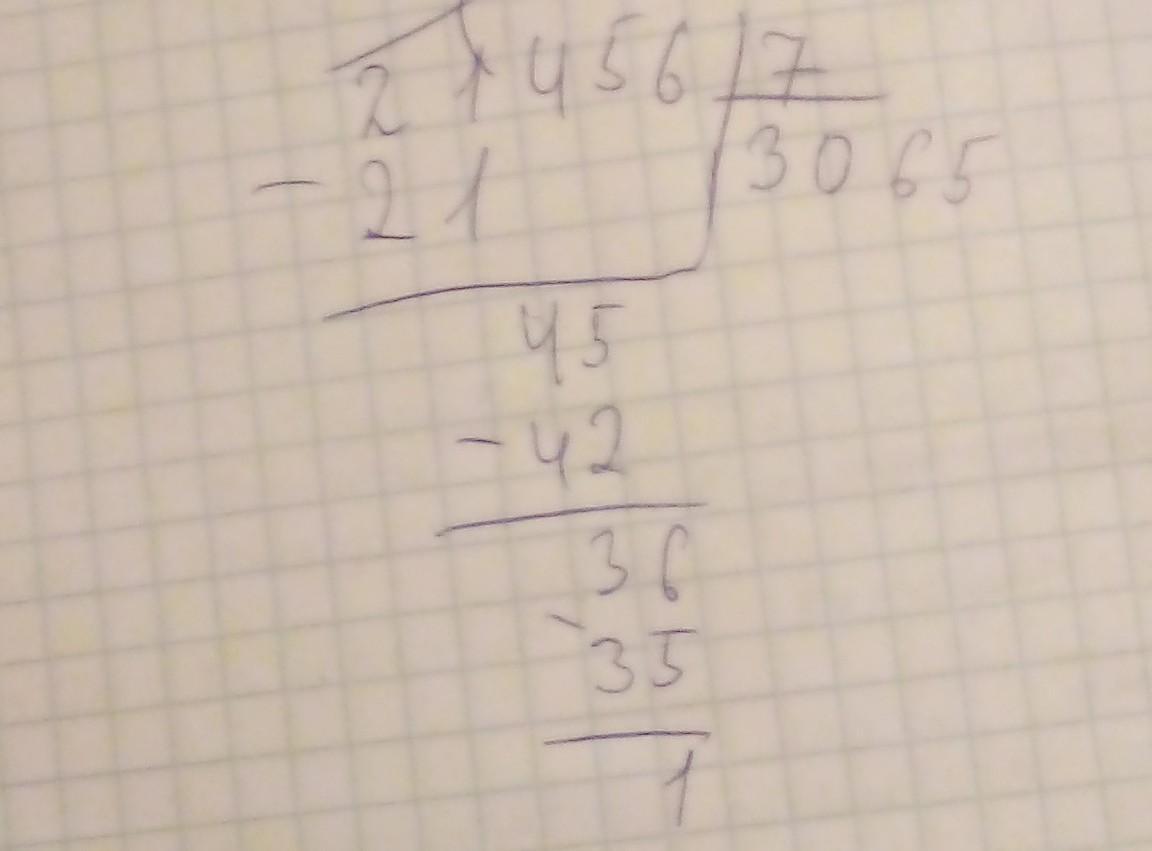 21456 7
- 21 3065
45
- 42
36
- 35
1